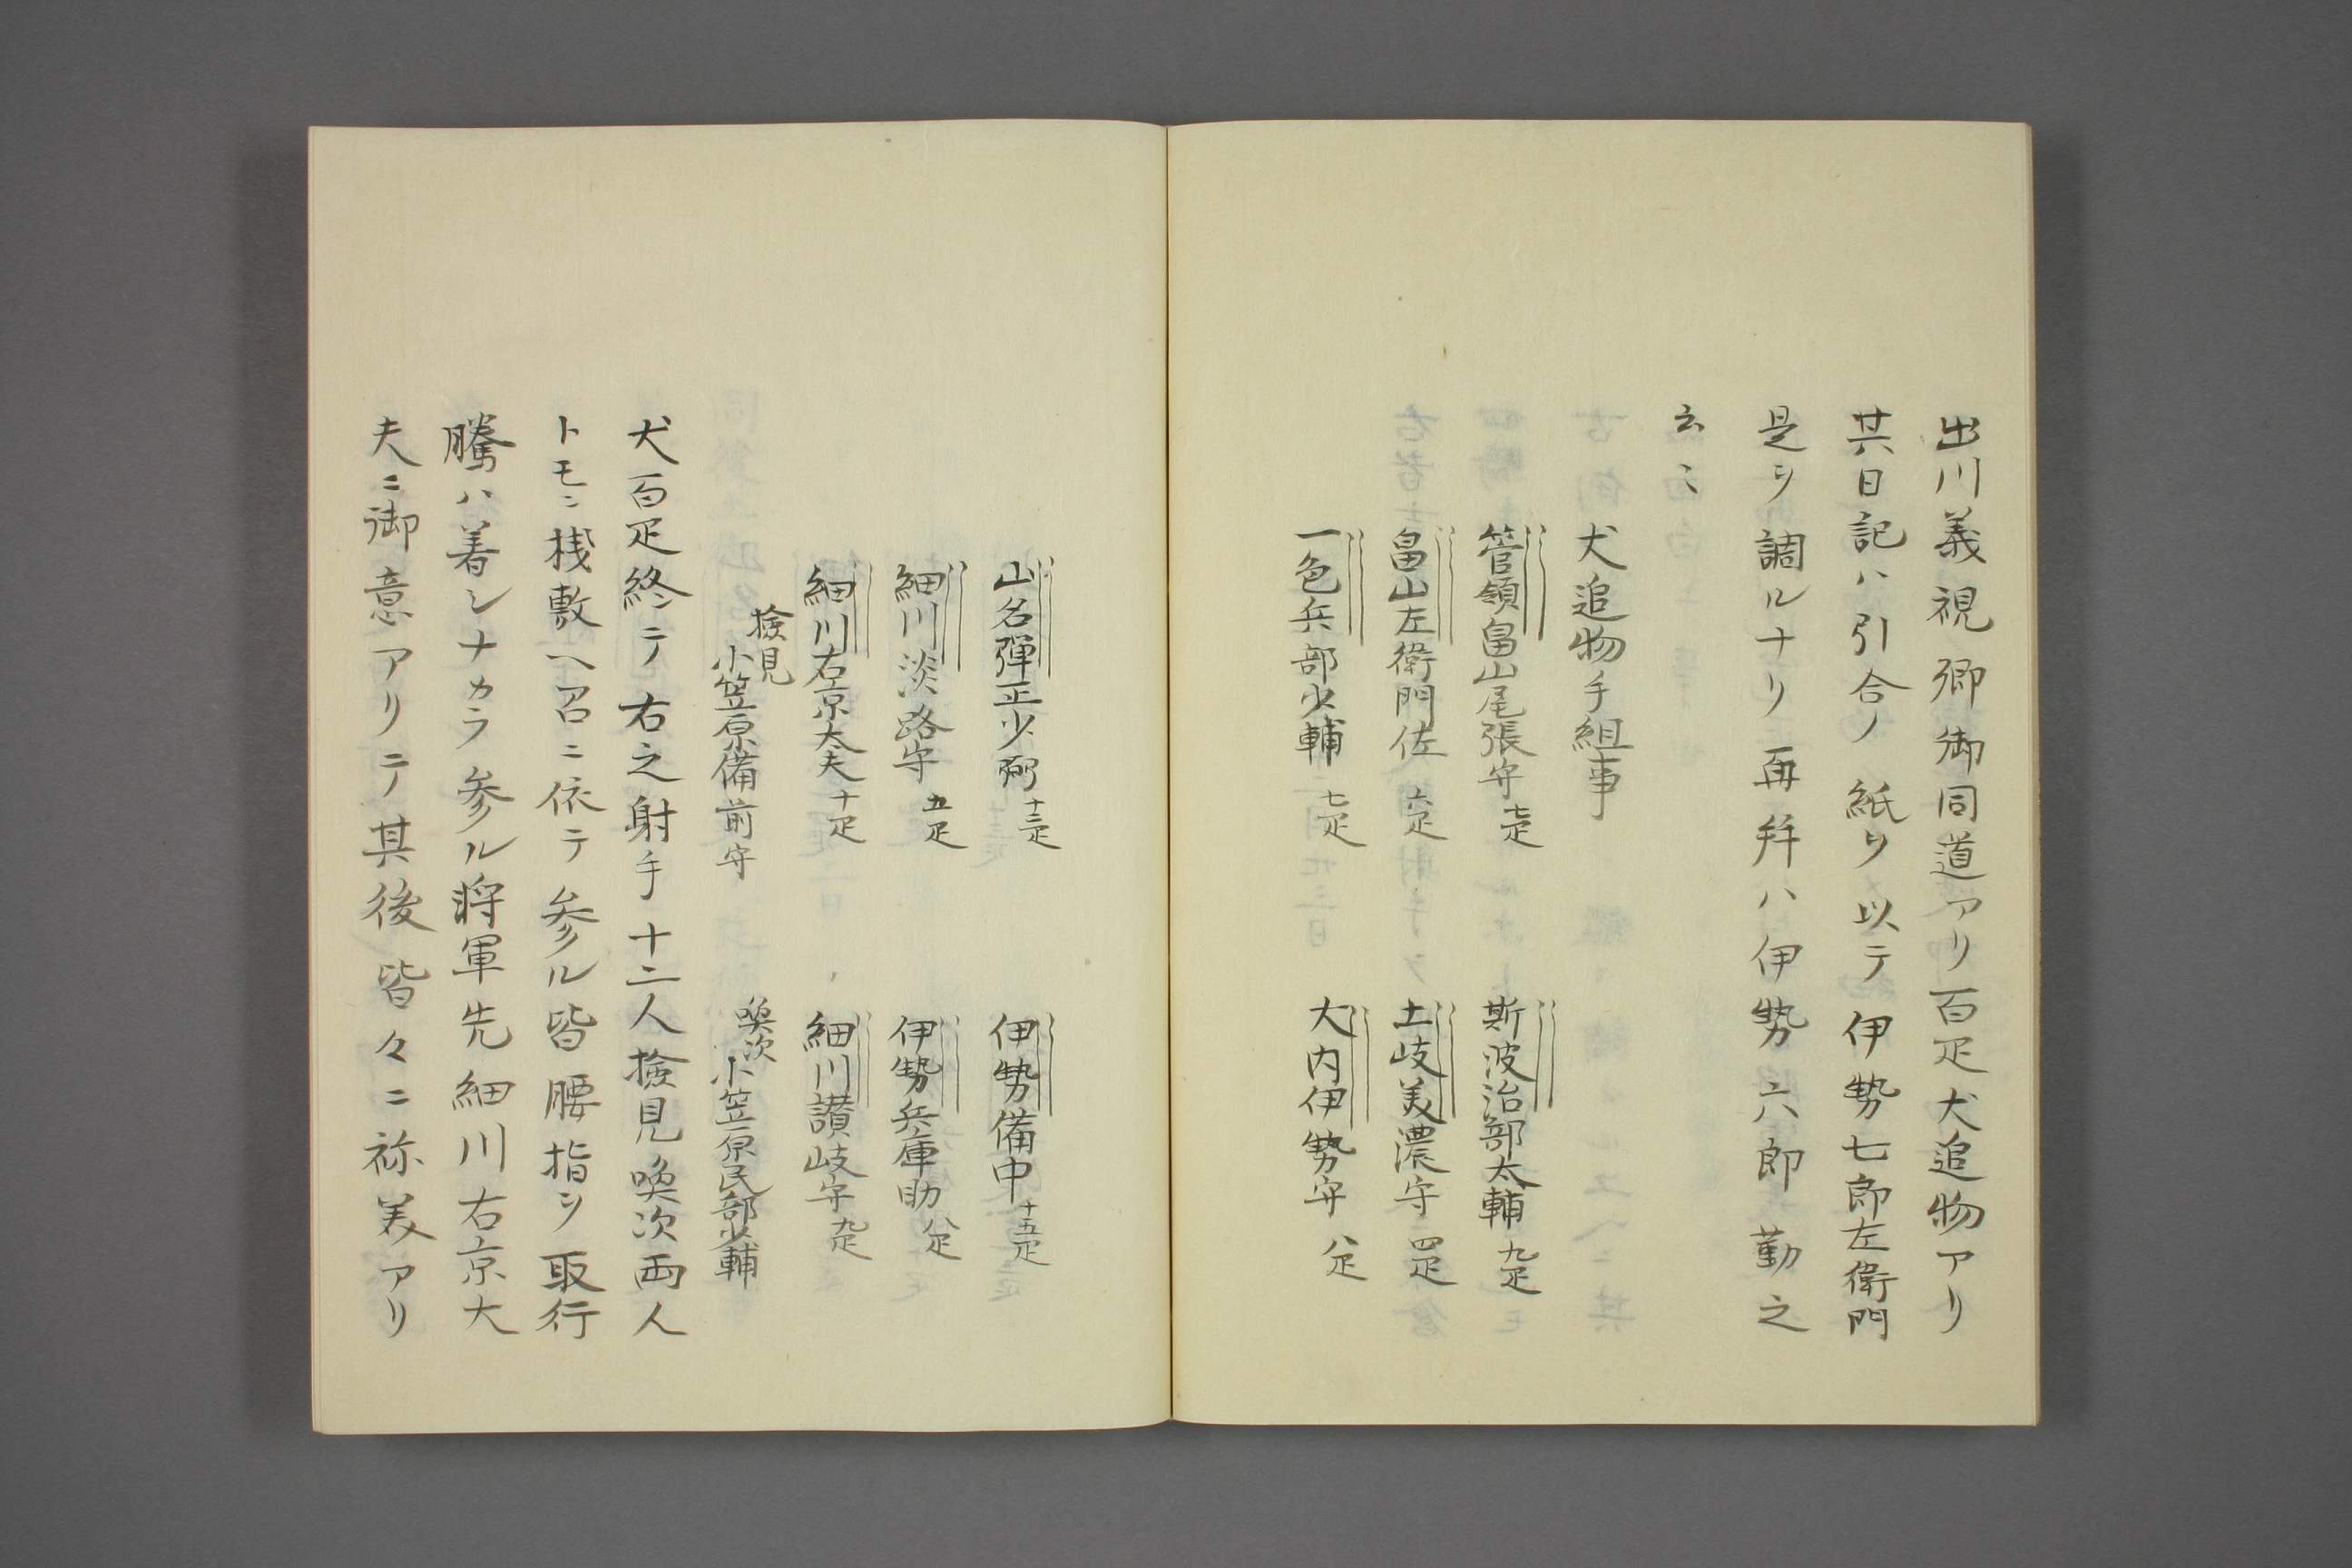 出川義視卿御同道アリ百疋犬追物アリ
其日記ハ引合ノ紙ヲ以テ伊勢七郎左衛門
是ヲ調ルナリ再拝ハ伊勢六郎勤之
云〻
犬追物手組事
管領畠山尾張守 七疋
斯波治部太輔 九疋
畠山左衛門佐 六疋
土岐美濃守 四疋
一色兵部少輔 七疋
大内伊勢守 八疋
山名彈正少弼 十三疋
伊勢備中 十五疋
細川淡路守 五疋
伊勢兵庫助 八疋
細川右京太夫 十疋
細川讃岐守 九疋
検見
小笠原備前守
喚次
小笠原民部少輔
犬百疋終テ右之射手十二人検見喚次両人
トモニ桟敷ヘ召ニ依テ参ル皆腰指ヲ取行
騰ハ着シナカラ参ル将軍先細川右京大
夫ニ御意アリテ其後皆々ニ祢美アリ